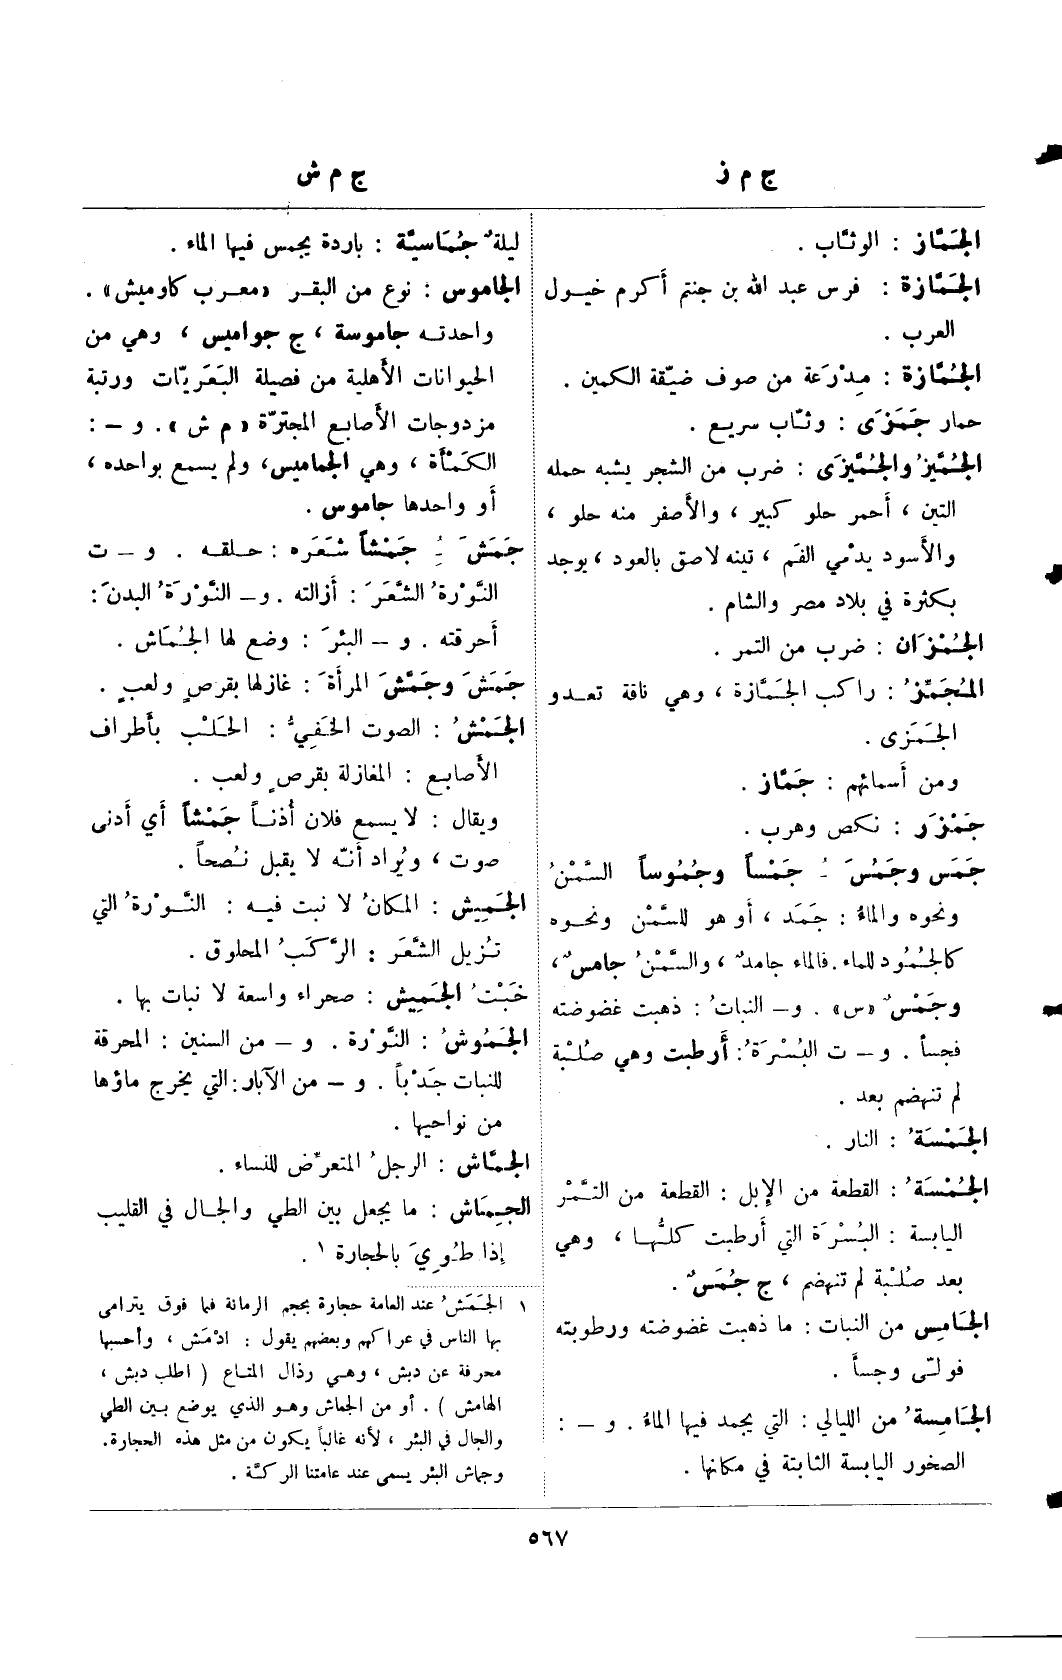 ج م ز
ج م ش
الجَمَّاز : الوثّاب .
الجَمَّازة : فرس عبد الله بن جنتم أكرم خيول
العرب .
الجُمَّازة : مِدْرَعة من صوف ضيّقة الكمين .
حمار جَمَزَى : وثّاب سريع .
الجُمَّيْز والجُمَّيْزَى : ضرب من الشجر يشبه حمله
التين ، أحمر حلو كبير ، والأصفر منه حلو ،
والأسود يدْمي الفَم ، تينه لاصق بالعود ، يوجد
بكثرة في بلاد مصر والشام .
الجُمْزَان : ضرب من التمر .
المُجَمِّزُ : راكب الجَمَّازة ، وهي ناقة تعدو
الجَمَزى .
ومن أسمائهم : جَمَّاز .
جَمْزَر : نكص وهرب .
جَمَس وجَمُسَ ـُ جَمْساً وجُمُوساً السَّمْنُ
ونحوه والماءُ : جَمَد ، أو هو للسَّمْن ونحوه
كالجُمُود للماء . فالماء جامدٌ ، والسَّمْنُ جامسٌ ،
وجَمْسٌ «س» . و– النباتُ : ذهبت غضوضته
فجسأ . و– ت البُسْرَةُ : أَرطبت وهي صُلْبة
لم تنهضم بعد .
الجَمْسَةُ : النار .
الجُمْسَةُ : القطعة من الإبل : القطعة من التَّمْر
اليابسة : البُسْرَة التي أَرطبت كلُّها ، وهي
بعد صُلْبة لم تنهضم ، ج جُمَسٌ .
الجَامِس من النبات : ما ذهبت غضوضته ورطوبته
فولّى وجسأ .
الجَامِسةُ من الليالي : التي يجمد فيها الماءُ . و – :
الصخور اليابسة الثابتة في مكانها .
ليلةٌ جُمَاسيَّة : باردة يجمس فيها الماء .
الجاموس : نوع من البقر «معرب كاوميش» .
واحدته جاموسة ، ج جواميس ، وهي من
الحيوانات الأهلية من فصيلة البَقَريّات ورتبة
مزدوجات الأصابع المجترّة « م ش » . و – :
الكَمْأة ، وهي الجماميس، ولم يسمع بواحده ،
أو واحدها جاموس .
جَمَشَ ـُِ جَمْشاً شَعَره : حلقه . و – ت
النَّوْرةُ الشَّعَرَ : أزالته . و– النَّوْرَةُ البدنَ :
أحرقته . و – البئرَ : وضع لها الجُمَاش .
جَمَشَ وجَمَّشَ المرأةَ : غازلها بقرصٍ ولعبٍ .
الجَمْشُ : الصوت الخَفِيُّ : الحَلْب بأطراف
الأصابع : المغازلة بقرصٍ ولعب .
ويقال : لا يسمع فلان أُذناً جَمْشاً أي أدنى
صوت ، ويُراد أنّه لا يقبل نُصحاً .
الجَمِيش : المكانُ لا نبت فيه : النَّوْرةُ التي
تُزيل الشَّعَر : الرَّكَبُ المحلوق .
خَبْتُ الجَمِيش : صحراء واسعة لا نبات بها .
الجَمُوشُ : النَّوْرة . و – من السنين : المحرقة
للنبات جَدْباً . و – من الآبار : التي يخرج ماؤها
من نواحيها .
الجمَّاش : الرجلُ المتعرّض للنساء .
الجِمَاش : ما يجعل بين الطي والجال في القليب
إذا طُوِيَ بالحجارة ١ .
١ الجَمَشُ عند العامة حجارة بحجم الرمانة فما فوق يترامى
بها الناس في عراكهم وبعضهم يقول : ادْمَش ، وأحسبها
محرفة عن دبش ، وهي رذال المتاع ( اطلب دبش ،
الهامش ) . أو من الجماش وهو الذي يوضع بين الطي
والجال في البئر ، لأنه غالباً يكون من مثل هذه الحجارة.
وجماش البئر يسمى عند عامتنا الركّة .
٥٦٧